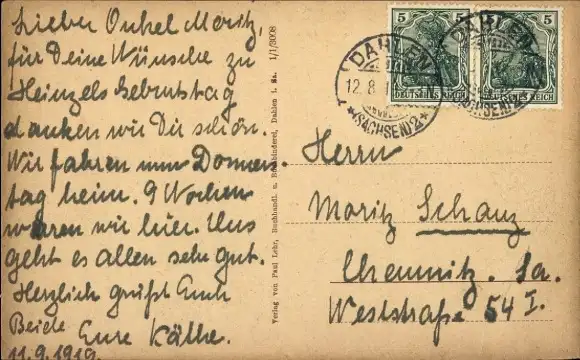 Lieber Onkel Moritz,
für Deine Wünsche zu
Heinzels Geburtstag
danken wir Dir schön.
Wir fahren nun Donners-
tag heim. 9 Wochen
waren wir hier. Uns
geht es allen sehr gut.
Herzlich grüßt Euch
Beide Eure Käthe.
11.9.1919.
Verlag von Paul Lehr, Buchhandl. u. Buchbinderei, Dahlen i. Sa. 1/1/3008
5 5
DEUTSCHES REICH
5 5
DEUTSCHES REICH
DAHLEN
12.8.1
*(SACHSEN)2*
DAHLEN
(SACHSEN)2*
Herrn
Moritz Schanz
Chemnitz. Sa.
Weststraße 54 I.